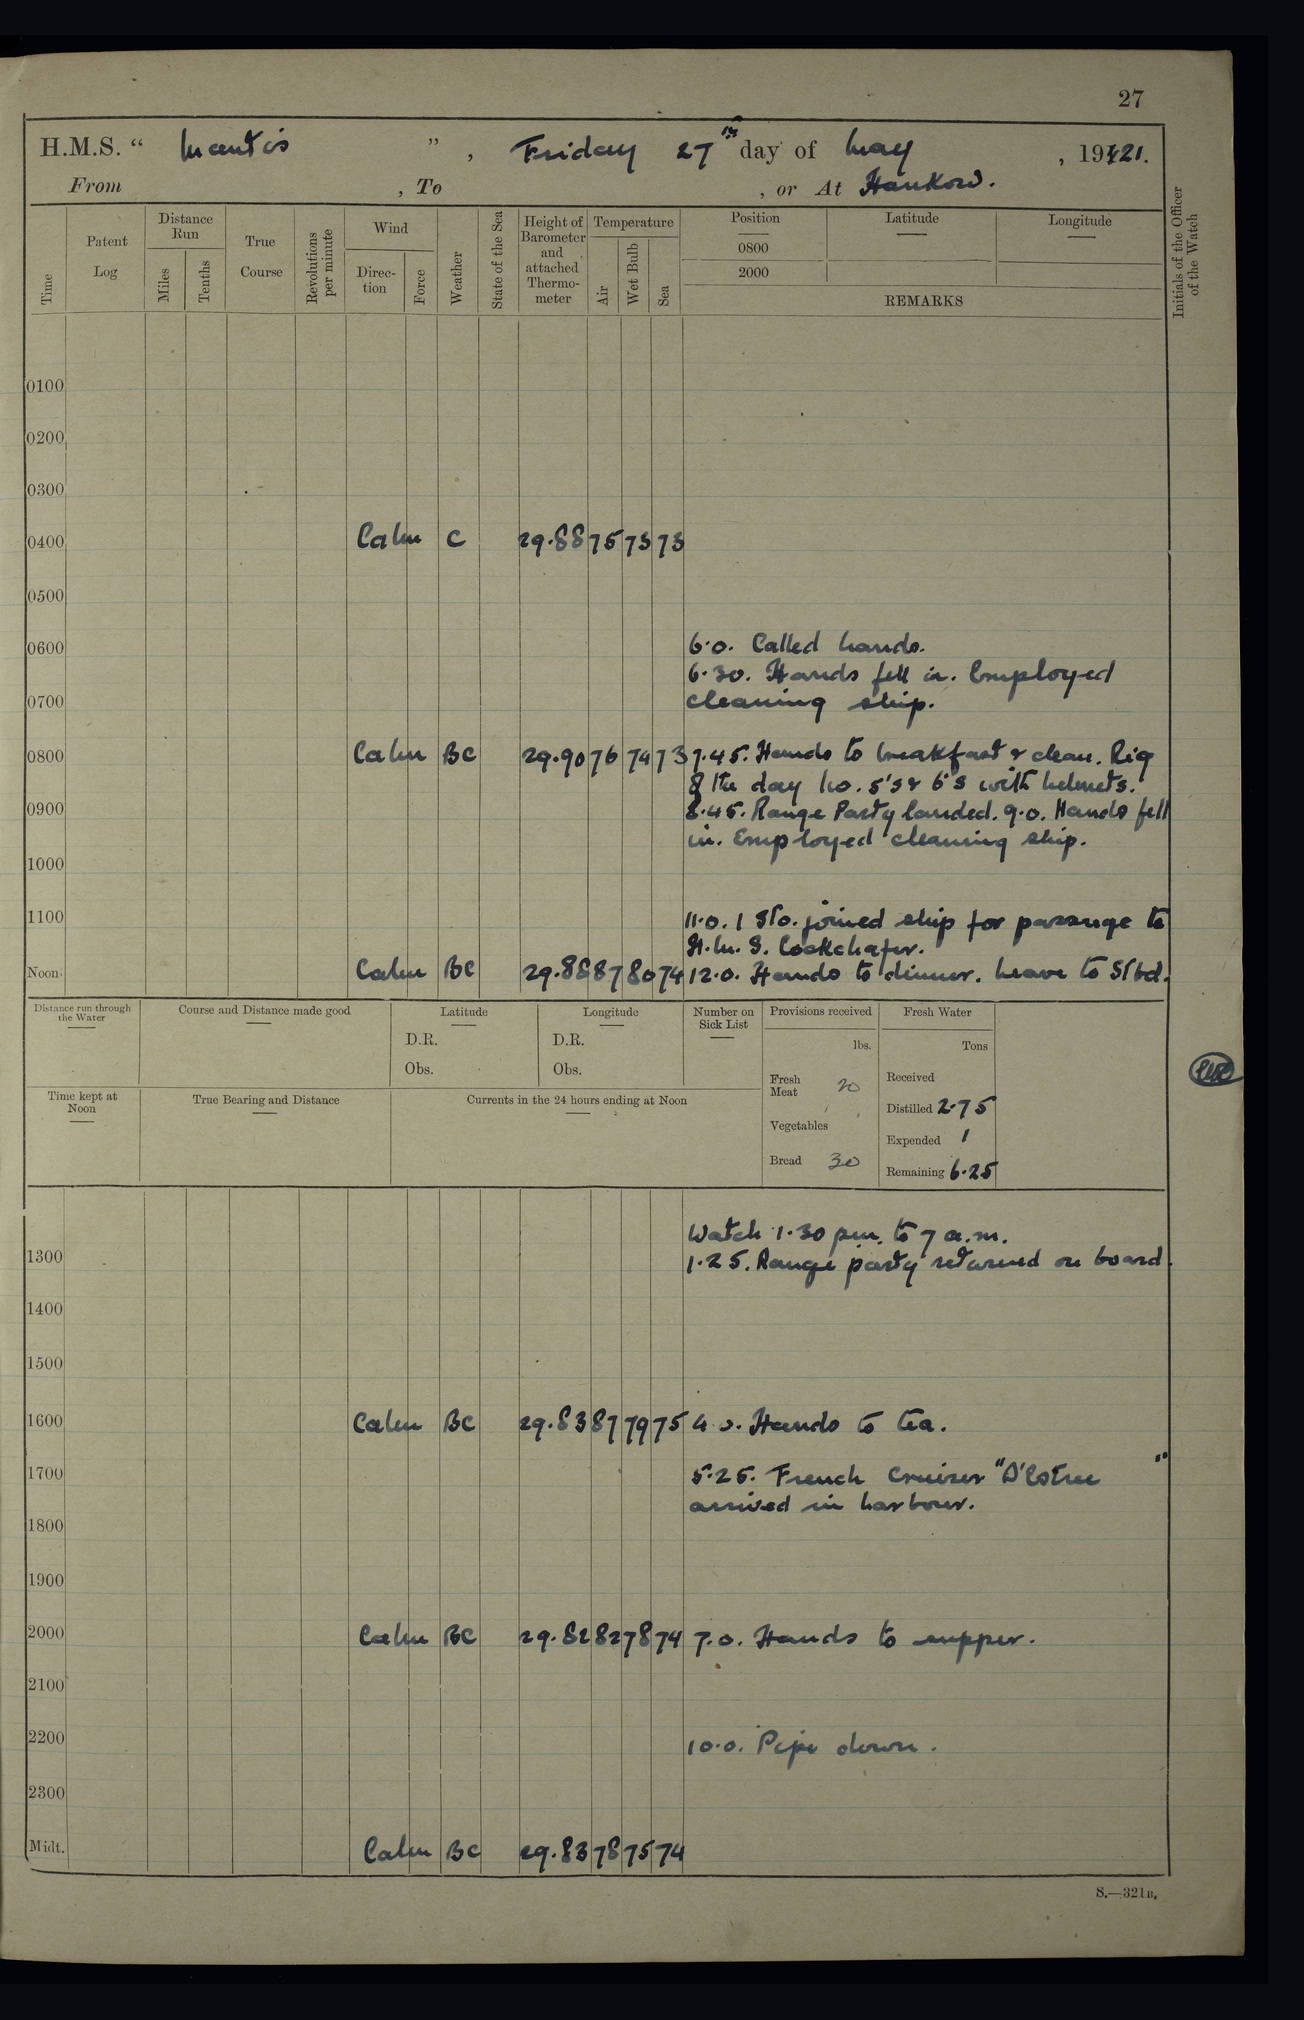 27
H.M.S. “ Mantis ”, Friday 27th day of May, 1921.
From , To , or At Hankow.
Time
Patent Log
Distance Run
Miles
Tenths
True Course
Revolutions per minute
Wind
Direction
Force
Weather
State of the Sea
Height of Barometer and attached Thermometer
Temperature
Air
Wet Bulb
Sea
Position
0800
2000
Latitude
Longitude
REMARKS
Initials of the Officer of the Watch
0100
0200
0300
0400 Calm C 29.88 75 73 73
0500
0600 6.0. Called hands.
6.30. Hands fell in. Employed
0700 cleaning ship.
0800 Calm BC 29.90 76 74 73 7.45. Hands to breakfast & clean. Rig
of the day No. 5's & 6's with helmets.
0900 8.45. Range Party landed. 9.0. Hands fell
in. Employed cleaning ship.
1000
1100 11.0. 1 Sto. joined ship for passage to
H.M.S. Cockchafer.
Noon Calm BC 29.88 87 80 74 12.0. Hands to dinner. Leave to Stbd.
Distance run through the Water
Course and Distance made good
Latitude
D.R.
Obs.
Longitude
D.R.
Obs.
Number on Sick List
Provisions received
lbs.
Fresh Meat 20
Vegetables
Bread 30
Fresh Water
Tons
Received
Distilled 2.75
Expended 1
Remaining 6.25
Time kept at Noon
True Bearing and Distance
Currents in the 24 hours ending at Noon
Watch 1.30 pm. to 7 a.m.
1300 1.25. Range party returned on board.
1400
1500
1600 Calm BC 29.83 87 79 75 4.0. Hands to tea.
1700 5.25. French Cruiser "D'Estree"
arrived in harbour.
1800
1900
2000 Calm BC 29.82 82 78 74 7.0. Hands to supper.
2100
2200 10.0. Pipe down.
2300
Midt. Calm BC 29.83 78 75 74
S.—321B.